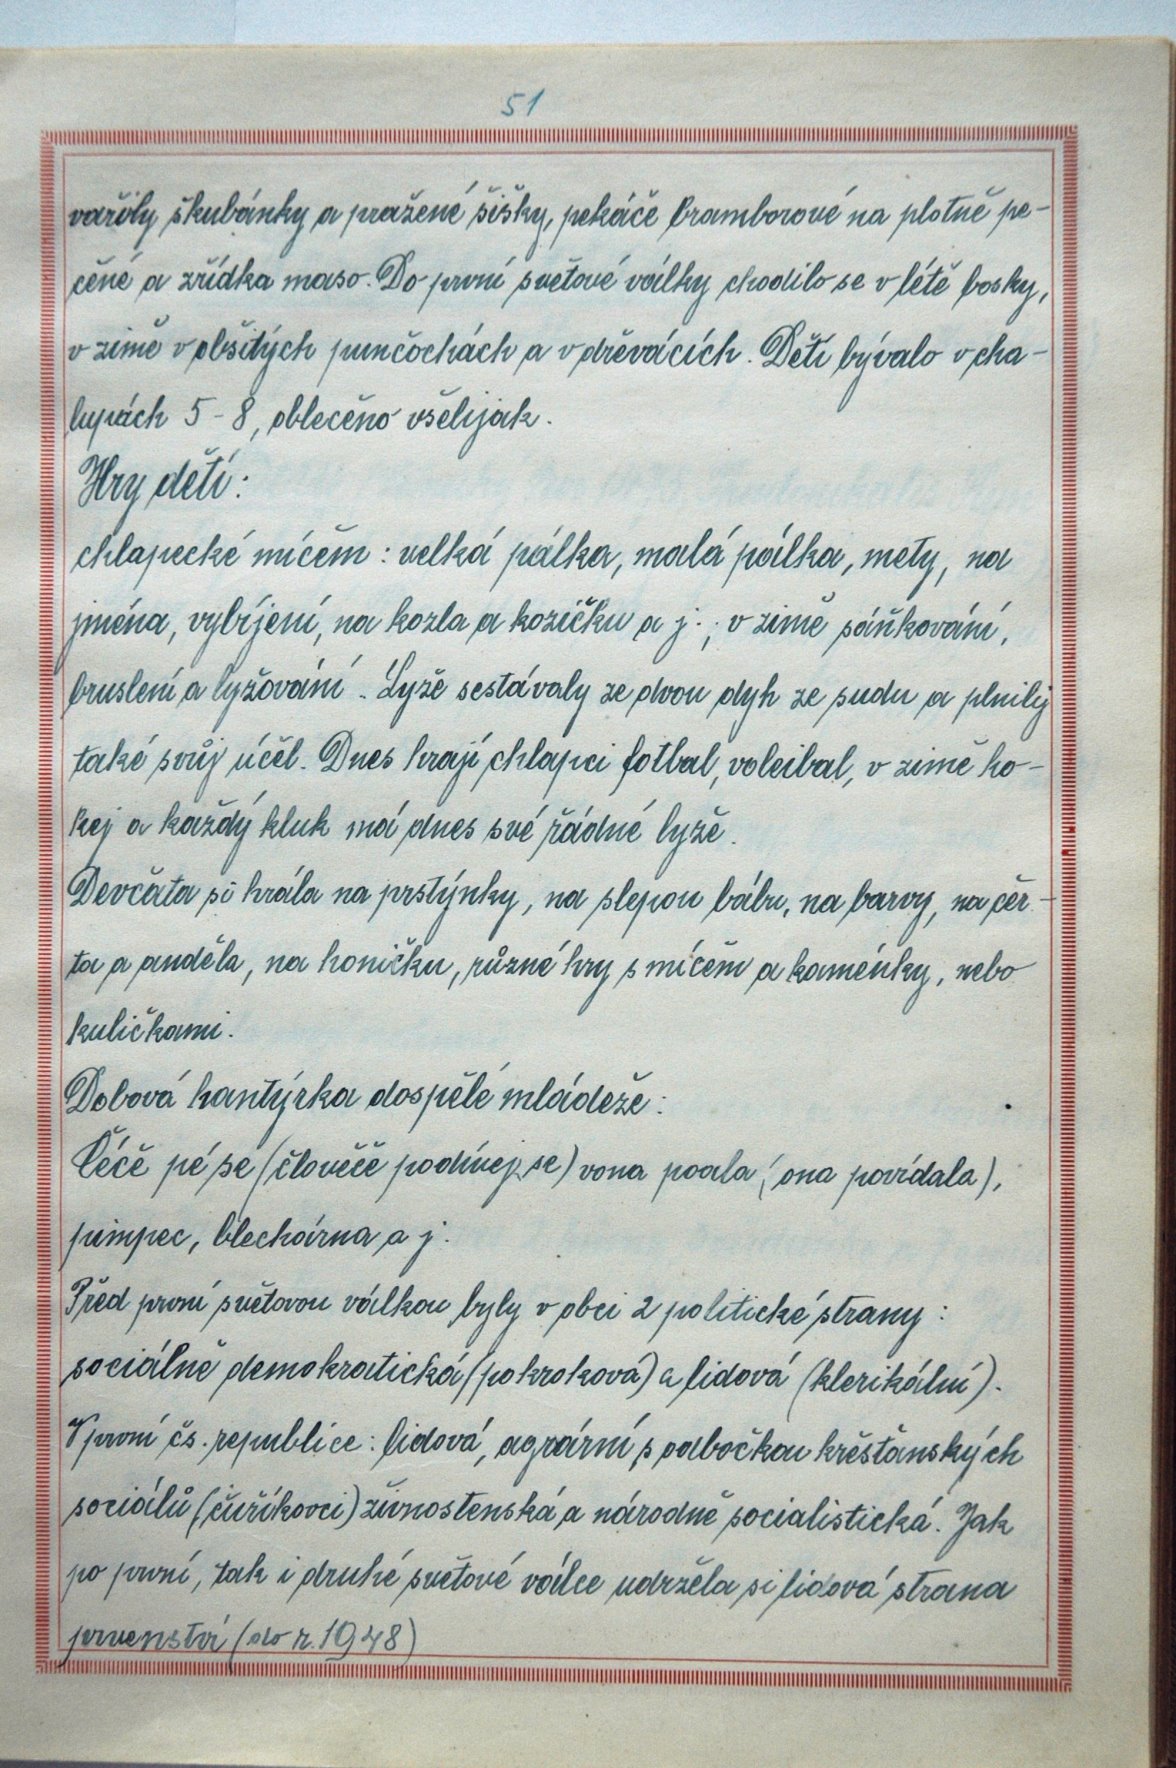 51
vařily škubánky a pražené šišky, pekáče bramborové na plotně pe-
čené a zřídka maso. Do první světové války chodilo se v létě bosky,
v zimě v obšitých punčochách a v dřevácích. Dětí bývalo v cha-
lupách 5-8, oblečeno všelijak.
Hry dětí:
chlapecké míčem: velká pálka, malá pálka, mety, na
jména, vybíjení, na kozla a kozičku a j.; v zimě sáňkování,
bruslení a lyžování. Lyže sestávaly ze dvou dyh ze sudu a plnily
také svůj účel. Dnes hrají chlapci fotbal, voleibal, v zimě ho-
kej a každý kluk má dnes své řádné lyže.
Děvčata si hrála na prstýnky, na slepou bábu, na barvy, na čer-
ta a anděla, na honičku, různé hry s míčem a kaménky, nebo
kuličkami.
Dobová hantýrka dospělé mládeže:
Čéče pé se (člověče podívej se) vona poala (ona povídala),
pimpec, blechárna a j.
Před první světovou válkou byly v obci 2 politické strany:
sociálně demokratická (pokroková) a lidová (klerikální).
V první čs. republice: lidová, agrární s odbočkou křesťanských
sociálů (čuříkovci) živnostenská a národně socialistická. Jak
po první, tak i druhé světové válce udržela si lidová strana
prvenství (do r. 1948)